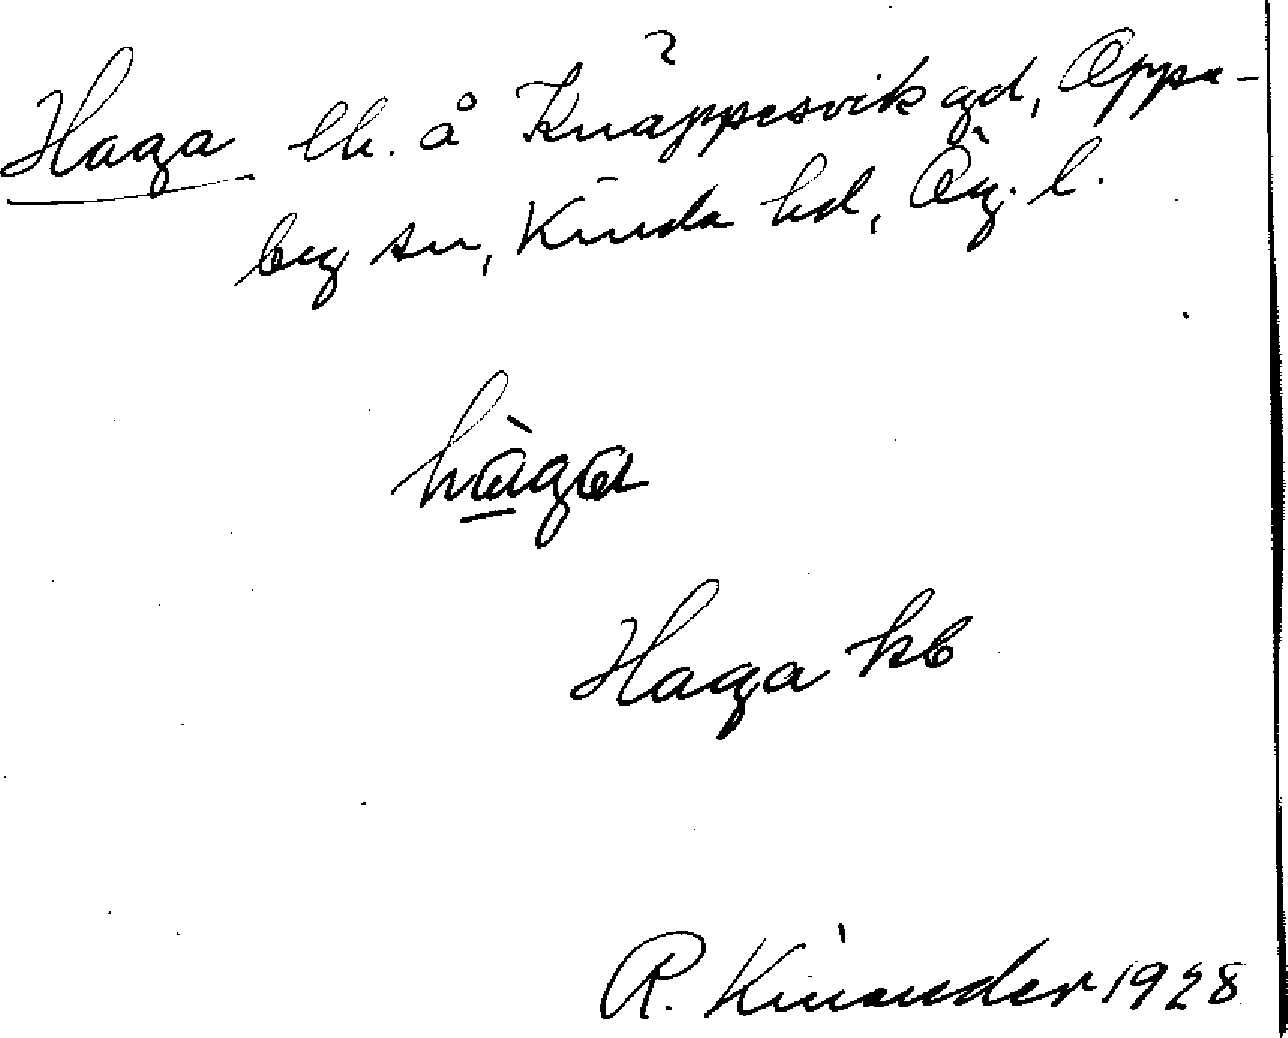 Haga lh. å Knäppesvik gd, Oppe-
by sn, Kinda hd, Ög. l.
hàga
Haga kb
R. Kinander 1928